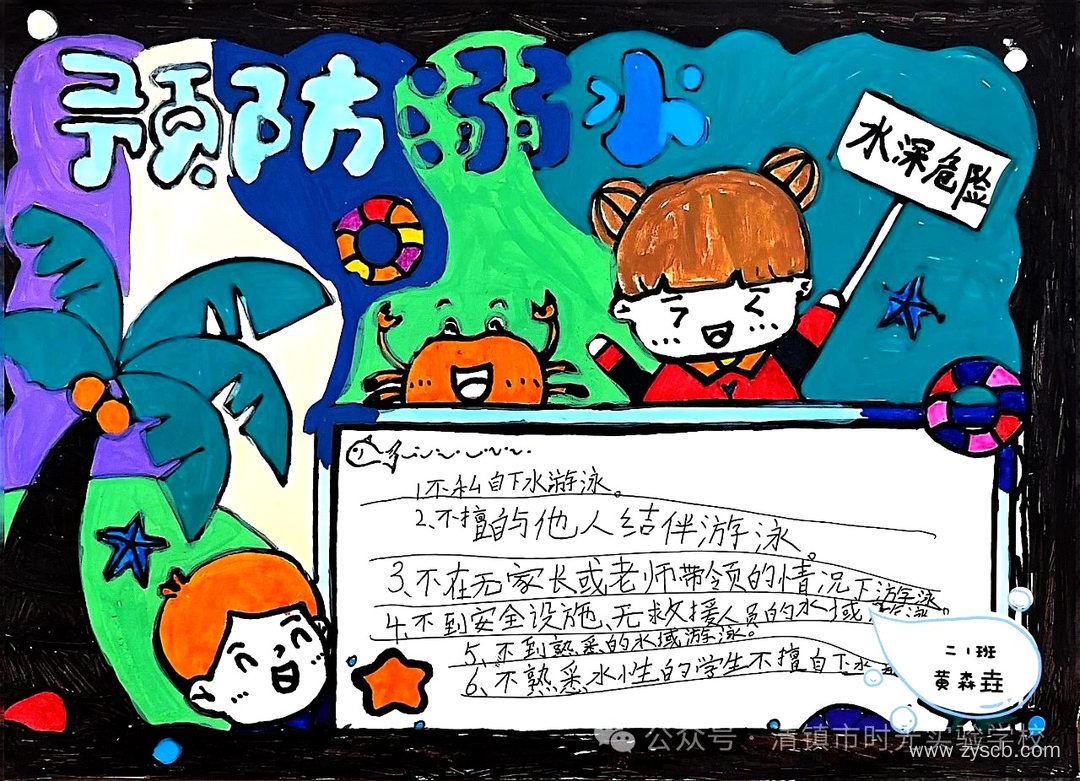 预防溺水
水深危险
1不私自下水游泳。
2、不擅自与他人结伴游泳。
3、不在无家长或老师带领的情况下游泳。
4、不到安全设施、无救援人员的水域
5、不到熟悉的水域游泳。
6、不熟悉水性的学生不擅自下水
二1班
黄淼垚
公众号·清镇市时光实验学校
www.zyscb.com